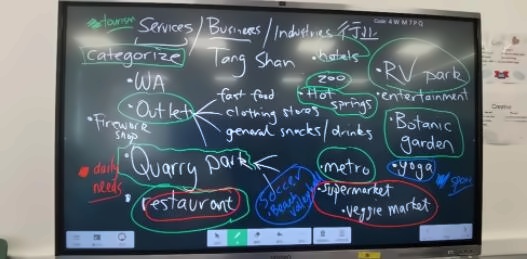 Code 4 W M 7 P Q
tourism
Services / Business / Industries 行业
categorize
Tang Shan
• hotels
RV park
• WA
zoo
• Outlet
fast food
• Hot springs
• entertainment
clothing stores
• Firework shop
general snacks / drinks
• Botanic garden
• Quarry park
• metro
• yoga
• daily needs
soccer
Beach volleyball
• supermarket
• restaurant
• veggie market
Creative